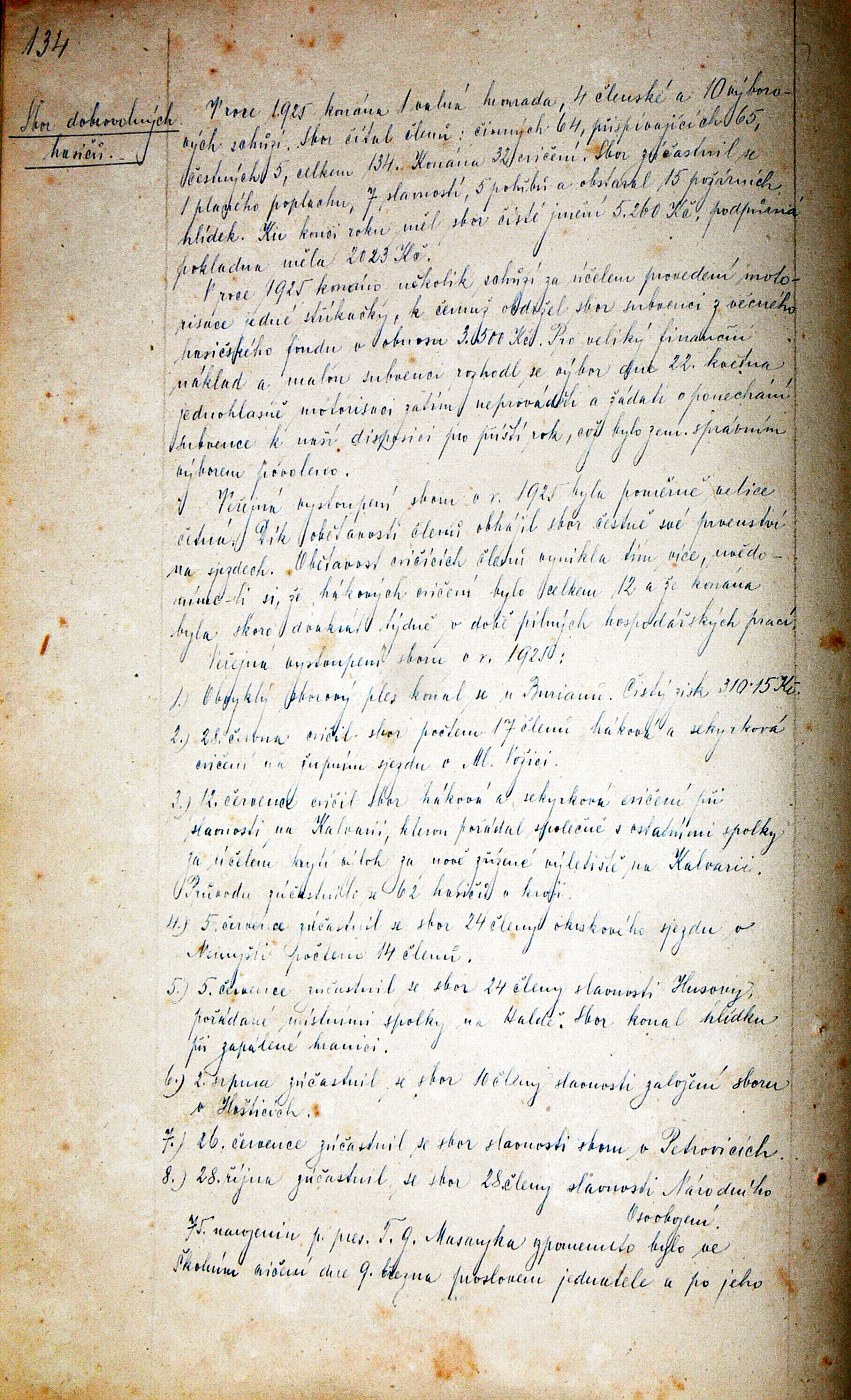 134
Sbor dobrovolných
hasičů.
V roce 1925 konána 1 valná hromada, 4 členské a 10 výboro-
vých schůzí. Sbor čítal členů: činných 64, přispívajících 65,
čestných 5, celkem 134. Konána 32 cvičení. Sbor zúčastnil se
1 planého poplachu, 7 slavností, 5 pohřbů a obstaral 15 požárních
hlídek. Ku konci roku měl sbor čisté jmění 5.260 Kč, podpůrná
pokladna měla 2023 Kč.
V roce 1925 konáno několik schůzí za účelem provedení moto-
risace jedné stříkačky, k čemuž obdržel sbor subvenci z věcného
hasičského fondu v obnosu 3.500 Kč. Pro veliký finanční
náklad a malou subvenci rozhodl se výbor dne 22. května
jednohlasně motorisaci zatím neprováděti a žádati o ponechání
subvence k naší disposici pro příští rok, což bylo zem. správním
výborem povoleno.
Veřejná vystoupení sboru v r. 1925 byla poměrně velice
četná. Dík obětavosti členů obhájil sbor čestně své prvenství
na sjezdech. Obětavost cvičících členů vynikla tím více, uvědo-
míme-li si, že hákových cvičení bylo celkem 12 a že konána
byla skoro dvakrát týdně v době pilných hospodářských prací.
Veřejná vystoupení sboru v r. 1925:
1.) Obvyklý sborový ples konal se u Burianů. Čistý zisk 310·15 Kč.
2.) 28. června cvičil sbor počtem 17 členů háková a sekyrková
cvičení na župním sjezdu v Ml. Vožici.
3.) 12. července cvičil sbor háková a sekyrková cvičení při
slavnosti na Kalvarii, kterou pořádal společně s ostatními spolky
za účelem krytí výloh za nově zřízené výletiště na Kalvarii.
Průvodu zúčastnilo se 62 hasičů v kroji.
4.) 5. července zúčastnil se sbor 24 členy okrskového sjezdu v
Nemyšli počtem 14 členů.
5.) 5. července zúčastnil se sbor 24 členy slavnosti Husovy,
pořádané místními spolky na Haldě. Sbor konal hlídku
při zapálené hranici.
6.) 2. srpna zúčastnil se sbor 10 členy slavnosti založení sboru
v Hošticích.
7.) 26. července zúčastnil se sbor slavnosti sboru v Petrovicích.
8.) 28. října zúčastnil se sbor 28 členy slavnosti Národního
Osvobození.
75. narozenin p. pres. T. G. Masaryka vzpomenuto bylo ve
školním cvičení dne 9. března proslovem jednatele a po jeho